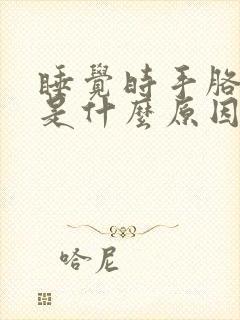 睡覺時手胳
是什麼原因
哈尼